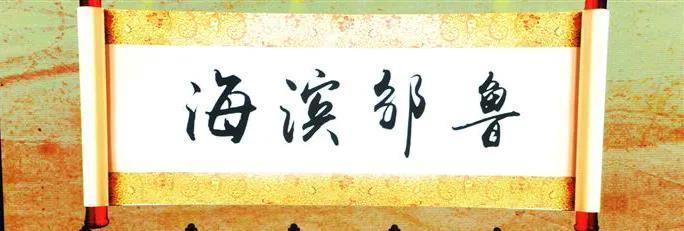 海滨邹鲁